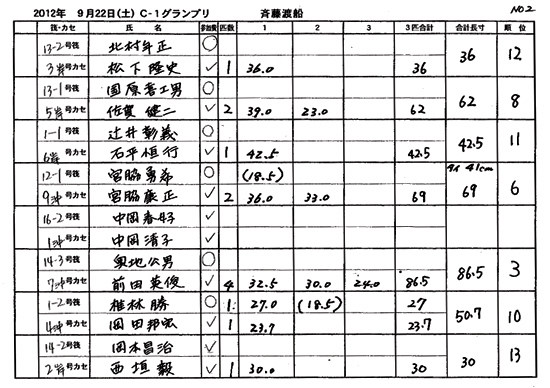 2012年 9月22日(土) C-1グランプリ 斉藤渡船 NO.2
筏・カセ 氏名 参加費 匹数 1 2 3 3匹合計 合計長寸 順位
13-2号筏 北村年正 ○
3岸号カセ 松下隆史 ✓ 1 36.0 36 36 12
13-1号筏 国原喜工男 ○
5岸号カセ 佐賀健二 ✓ 2 39.0 23.0 62 62 8
1-1号筏 辻井彰義 ○
6岸号カセ 石平恒行 ✓ 1 42.5 42.5 42.5 11
12-1号筏 宮脇勇希 ○ (18.5) タイ 41cm
9沖号カセ 宮脇康正 ✓ 2 36.0 33.0 69 69 6
16-2号筏 中岡春好 ✓
1沖号カセ 中岡清子 ✓
14-3号筏 奥地公男 ○
7沖号カセ 前田英俊 ✓ 4 32.5 30.0 24.0 86.5 86.5 3
1-2号筏 椎林勝 ○ 1 27.0 (18.5) 27
4沖号カセ 岡田邦宏 ✓ 1 23.7 23.7 50.7 10
14-2号筏 岡本昌治 ✓
2岸号カセ 西垣毅 ✓ 1 30.0 30 30 13